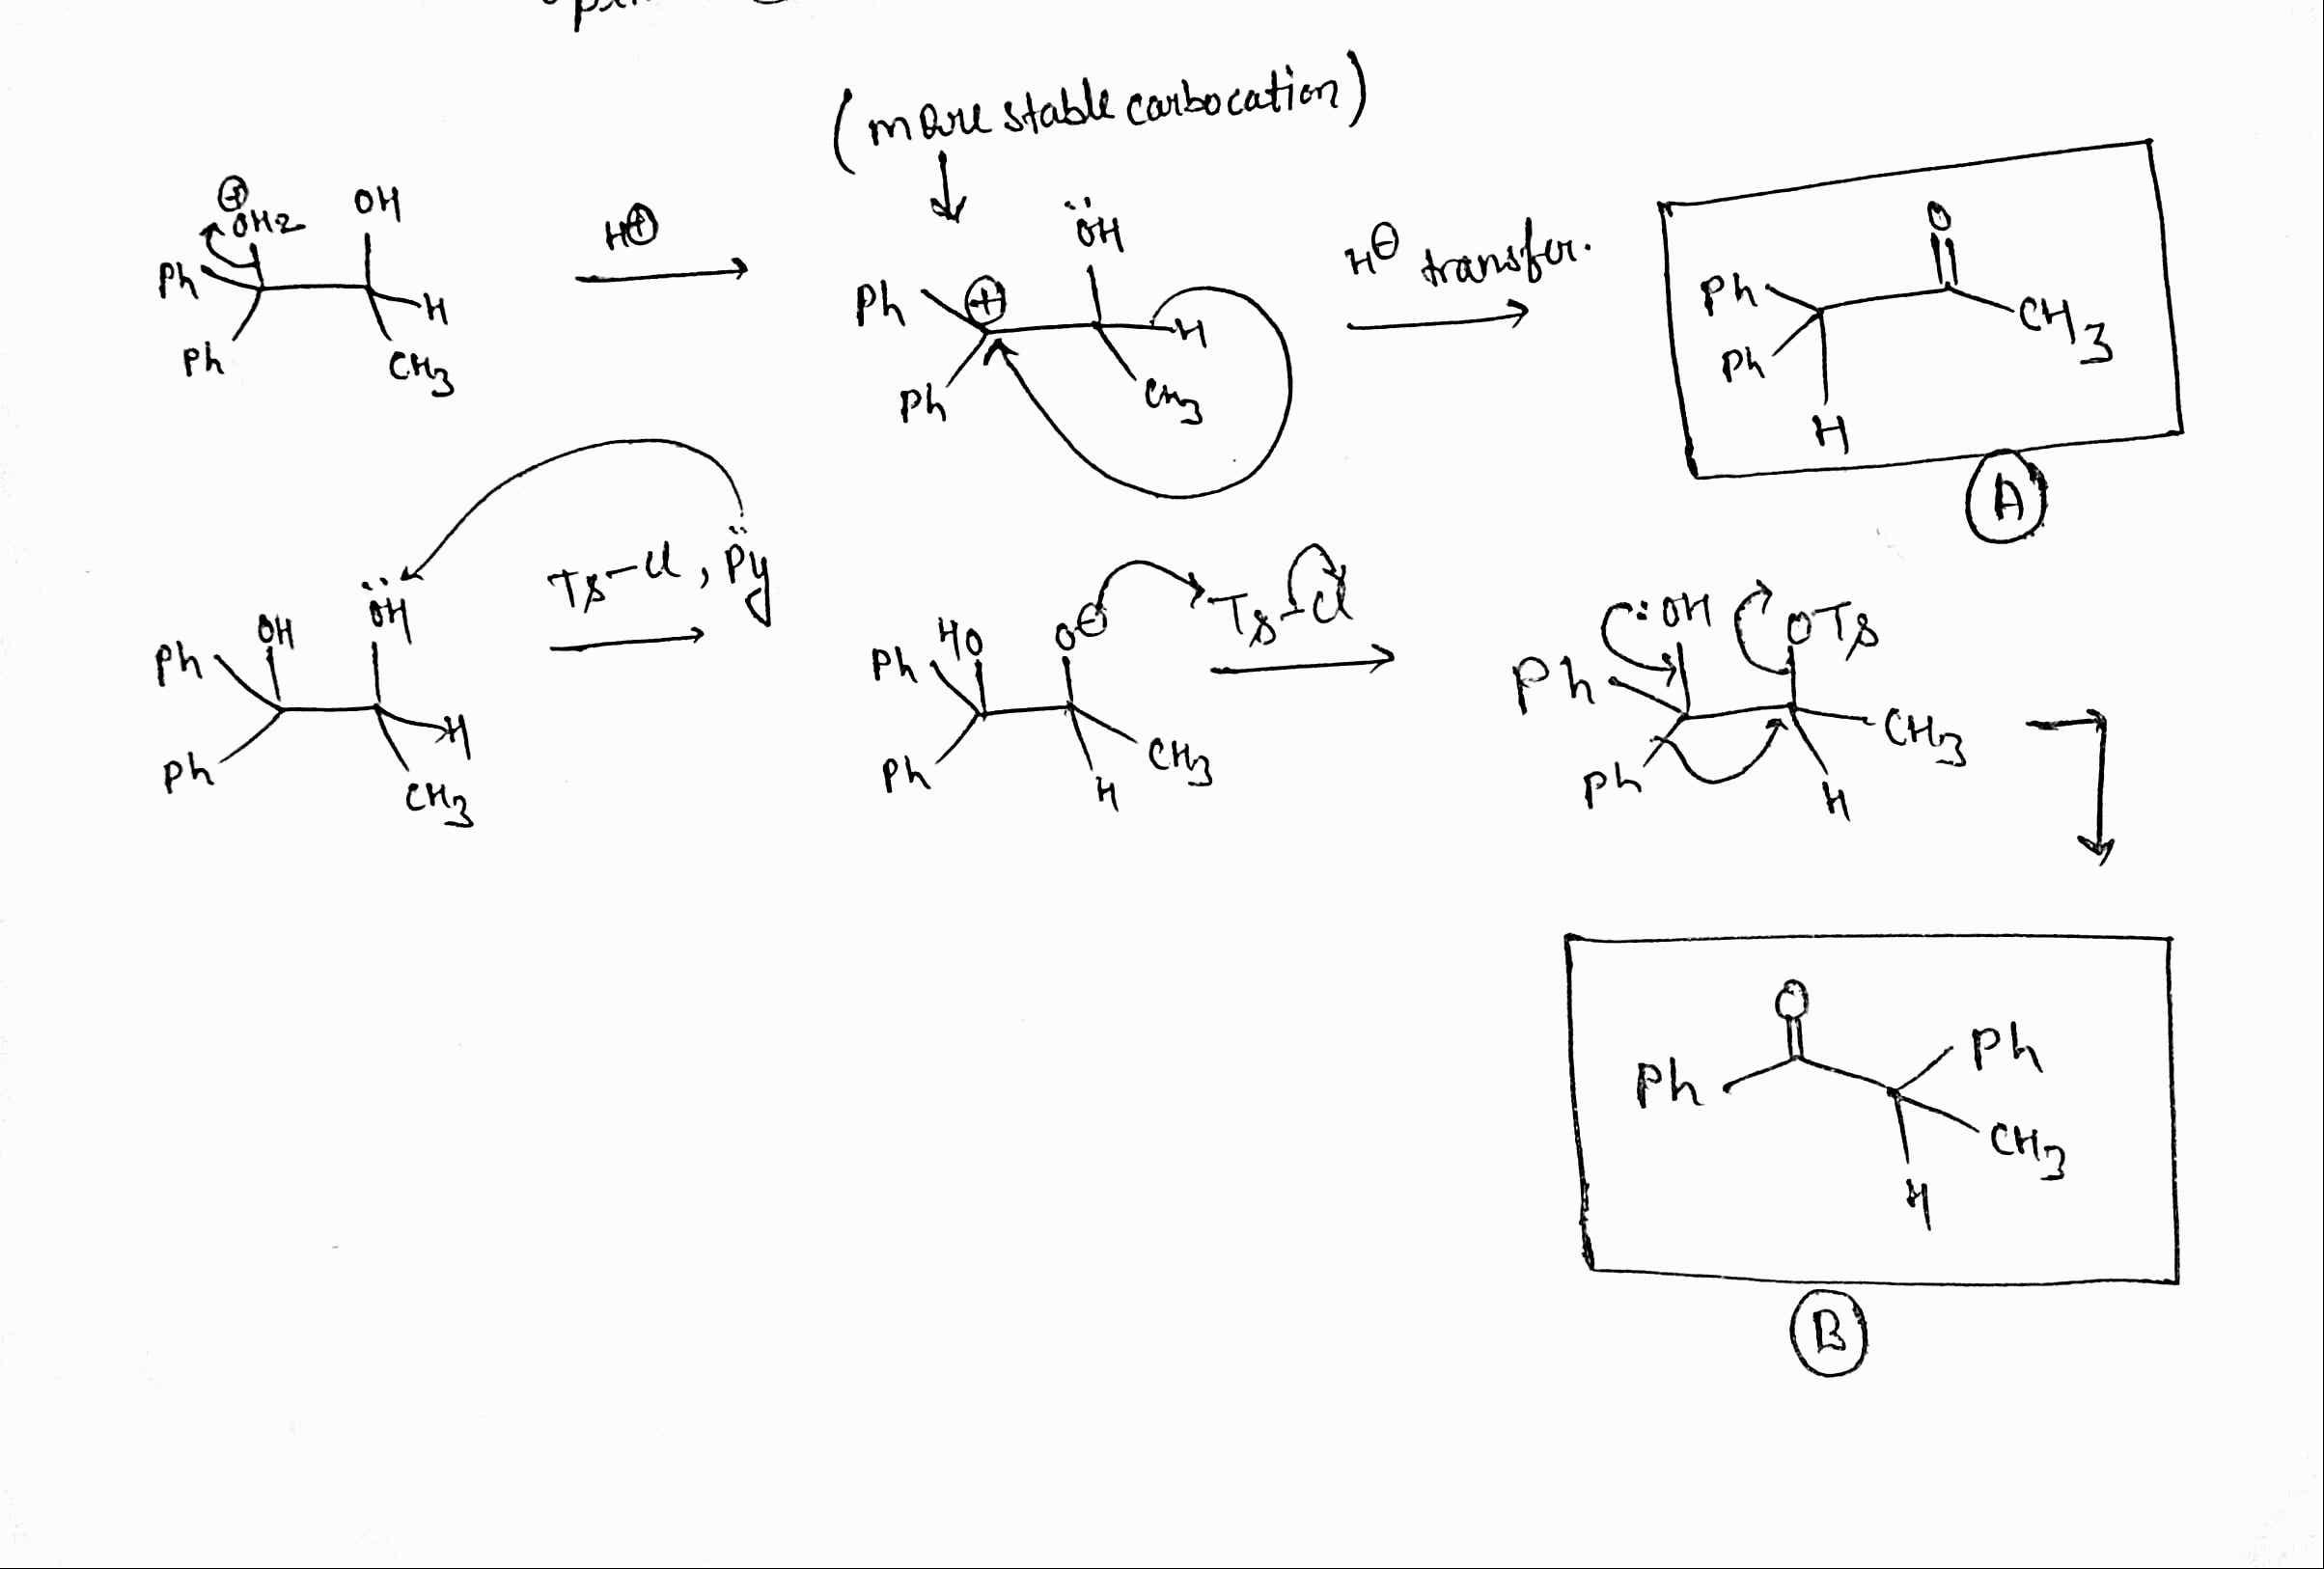 (more stable carbocation)
⊕
OH2 OH
Ph H
Ph CH3
H⊕
Ph ⊕ ÖH H
Ph CH3
H⊖ transfer.
Ph O CH3
Ph H
A
Ph OH ÖH H
Ph CH3
Ts-Cl, P̈y
Ph HO O⊖ CH3
Ph H
Ts-Cl
Ph :OH OTs CH3
Ph H
O
Ph Ph
CH3
H
B